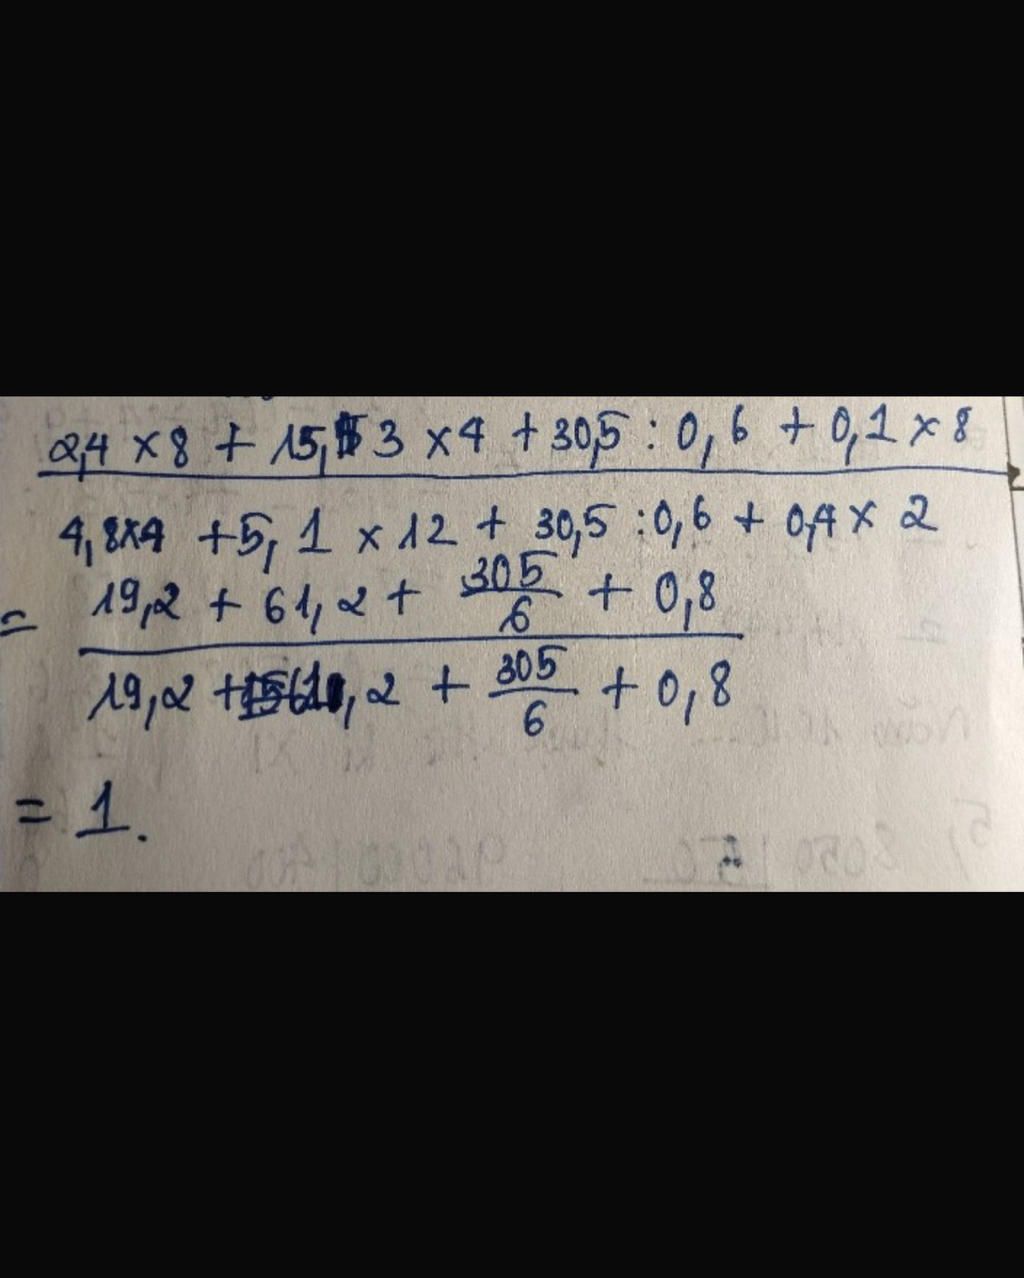 2,4 × 8 + 15,3 × 4 + 30,5 : 0,6 + 0,1 × 8
4,8×4 + 5,1 × 12 + 30,5 : 0,6 + 0,4 × 2
= 19,2 + 61,2 + 305/6 + 0,8
19,2 + 61,2 + 305/6 + 0,8
= 1.